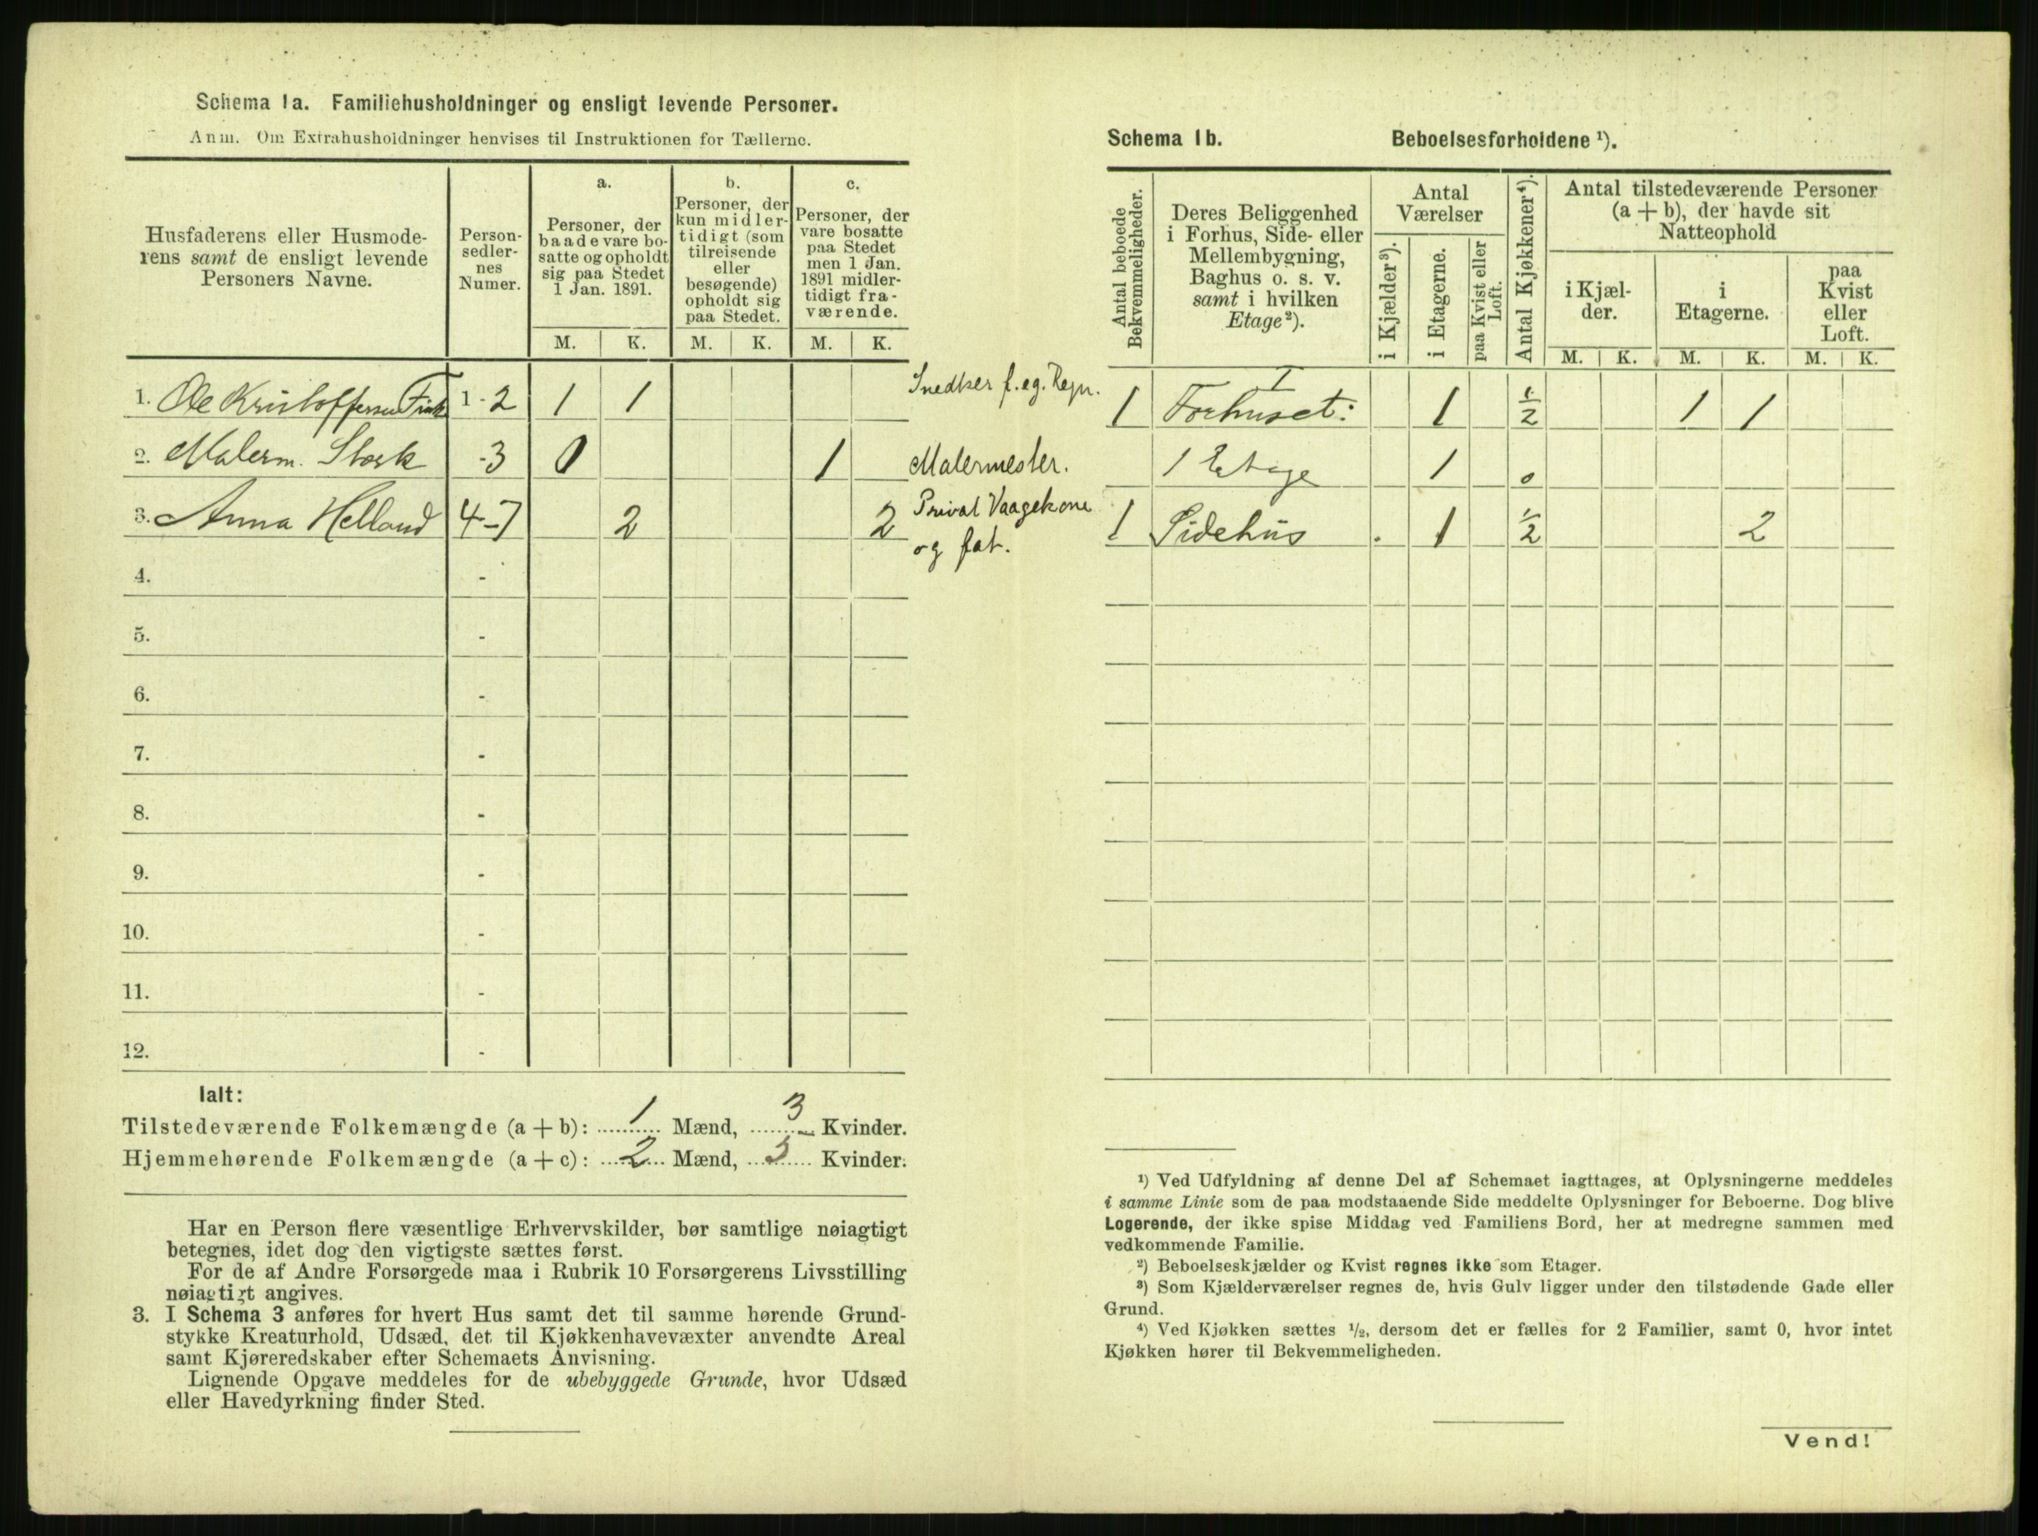 Schema 1a. Familiehusholdninger og ensligt levende Personer.
Anm. Om Extrahusholdninger henvises til Instruktionen for Tællerne.
Husfaderens eller Husmoderens samt de ensligt levende Personers Navne.
Personsedlernes Numer.
a.
Personer, der baade vare bosatte og opholdt sig paa Stedet 1 Jan. 1891.
b.
Personer, der kun midlertidigt (som tilreisende eller besøgende) opholdt sig paa Stedet.
c.
Personer, der vare bosatte paa Stedet men 1 Jan. 1891 midlertidigt fraværende.
M. K. M. K. M. K.
1. Ole Kristoffersen 1-2 1 1 Snedker f. eg. Regn.
2. Malerm. Stork -3 0 1 Malermester.
3. Anna Helland 4-7 2 2 Privat Vaagekone
og fat.
4. -
5. -
6. -
7. -
8. -
9. -
10. -
11. -
12. -
Ialt:
Tilstedeværende Folkemængde (a + b): 1 Mænd, 3 Kvinder.
Hjemmehørende Folkemængde (a + c): 2 Mænd, 5 Kvinder.
Har en Person flere væsentlige Erhvervskilder, bør samtlige nøiagtigt
betegnes, idet dog den vigtigste sættes først.
For de af Andre Forsørgede maa i Rubrik 10 Forsørgerens Livsstilling
nøiagtigt angives.
3. I Schema 3 anføres for hvert Hus samt det til samme hørende Grund-
stykke Kreaturhold, Udsæd, det til Kjøkkenhavevæxter anvendte Areal
samt Kjøreredskaber efter Schemaets Anvisning.
Lignende Opgave meddeles for de ubebyggede Grunde, hvor Udsæd
eller Havedyrkning finder Sted.
Schema 1b. Beboelsesforholdene ¹).
Antal beboede Bekvemmeligheder.
Deres Beliggenhed i Forhus, Side- eller Mellembygning, Baghus o. s. v. samt i hvilken Etage²).
Antal Værelser
i Kjælder³).
i Etagerne.
paa Kvist eller Loft.
Antal Kjøkkener⁴).
Antal tilstedeværende Personer (a + b), der havde sit Natteophold
i Kjælder.
i Etagerne.
paa Kvist eller Loft.
M. K. M. K. M. K.
I
1 Forhuset: 1 ½ 1 1
1 Etage 1 0
1 Sidehus . 1 ½ 2
¹) Ved Udfyldning af denne Del af Schemaet iagttages, at Oplysningerne meddeles
i samme Linie som de paa modstaaende Side meddelte Oplysninger for Beboerne. Dog blive
Logerende, der ikke spise Middag ved Familiens Bord, her at medregne sammen med
vedkommende Familie.
²) Beboelseskjælder og Kvist regnes ikke som Etager.
³) Som Kjælderværelser regnes de, hvis Gulv ligger under den tilstødende Gade eller
Grund.
⁴) Ved Kjøkken sættes ½, dersom det er fælles for 2 Familier, samt 0, hvor intet
Kjøkken hører til Bekvemmeligheden.
Vend!